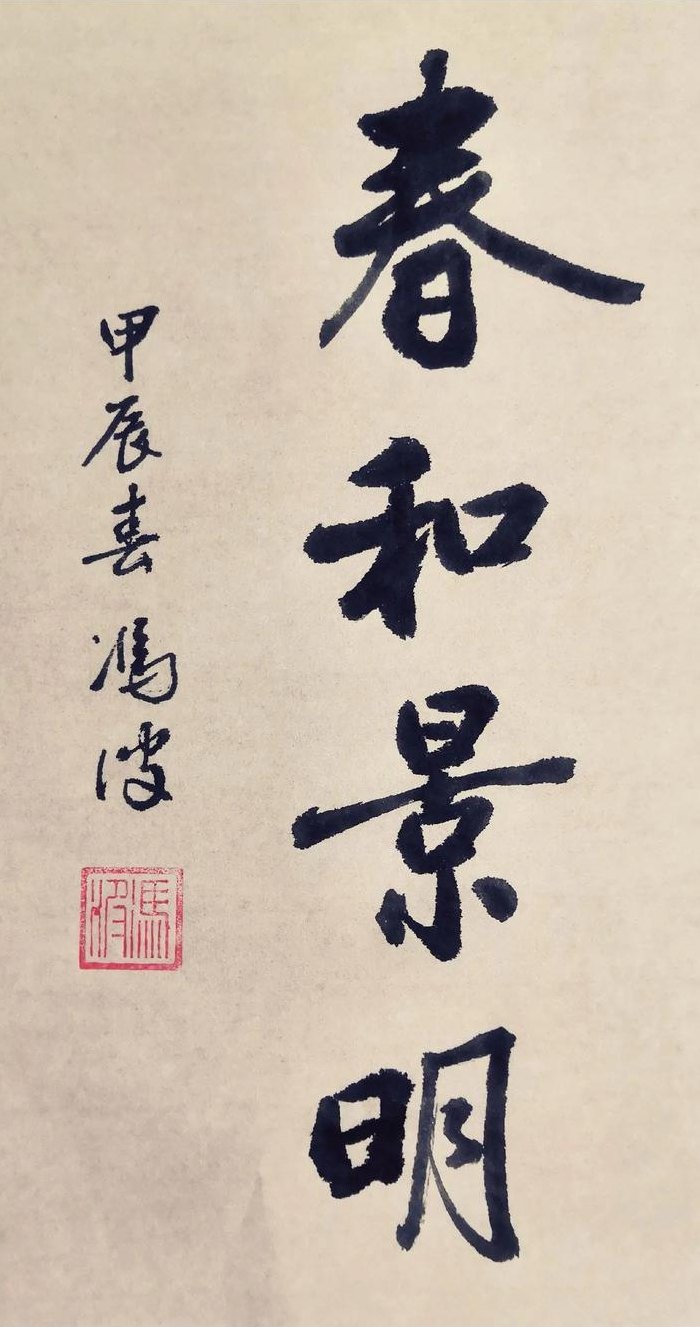 春和景明
甲辰春 馮波
馮波